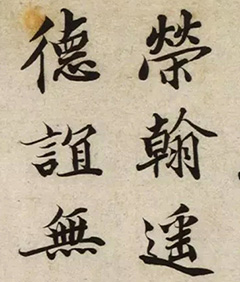 榮翰遥
德誼無